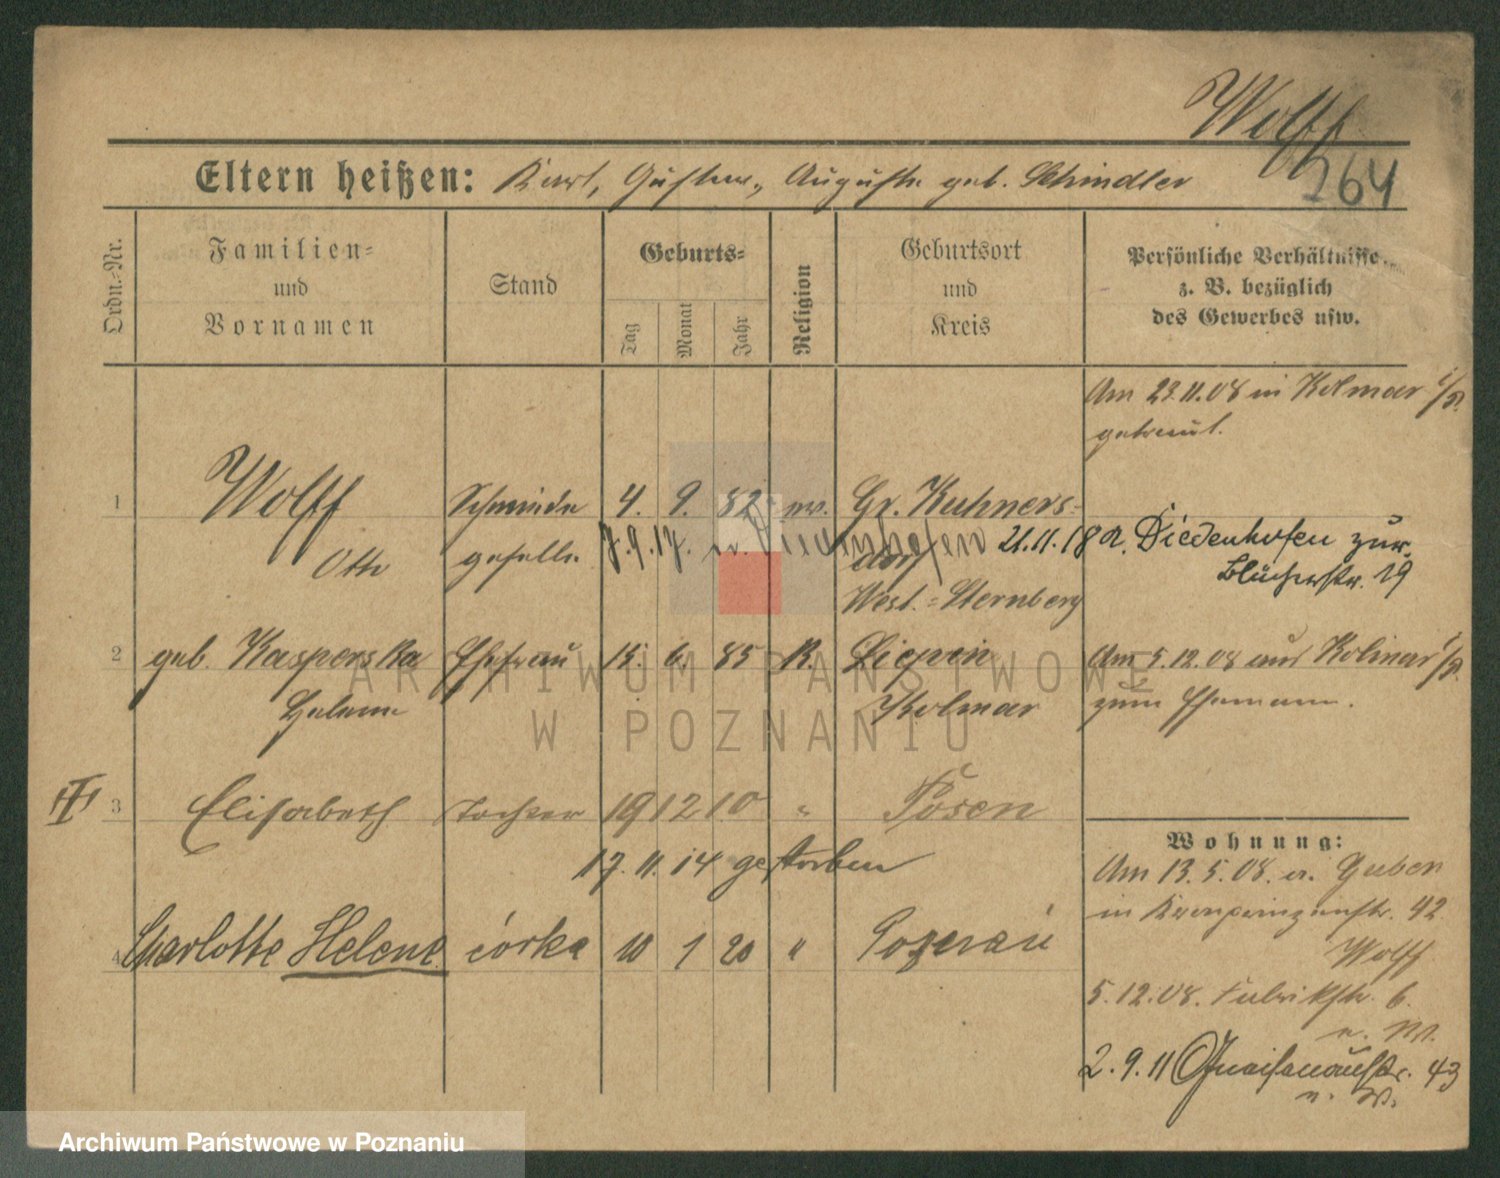 Wolff
264
Eltern heißen: Karl, Gustav, Auguste geb. Schindler
Ordn.-Nr.
Familien-
und
Vornamen
Stand
Geburts-
Tag
Monat
Jahr
Religion
Geburtsort
und
Kreis
Persönliche Verhältnisse
z. B. bezüglich
des Gewerbes usw.
Am 23.11.08 in Kolmar i/P.
getraut.
1 Wolff Schmiede 4. 9. 82 ev. Gr. Kuhners-
7.9.17. n. Diedenhofen 21.11.18 a. Diedenhofen zur.
Otto geselle dorf
Blücherstr. 19
West.-Sternberg
2 geb. Kasperska Ehefrau 15. 6. 85 K. Liepin Am 5.12.08 aus Kolmar i/P.
Helene Kolmar zum Ehemann.
III 3 Elisabeth Tochter 19 12 10 " Posen
17. 11. 14 gestorben
4 Charlotte Helene córka 10 1 20 " Poznań
Wohnung:
Am 13.5.08. a. Guben
in Kronprinzenstr. 42
Wolff
5.12.08. Fabrikstr. 6.
n. W.
2.9.11 Gneisenaustr. 43
n. W.
ARCHIWUM PAŃSTWOWE
W POZNANIU
Archiwum Państwowe w Poznaniu